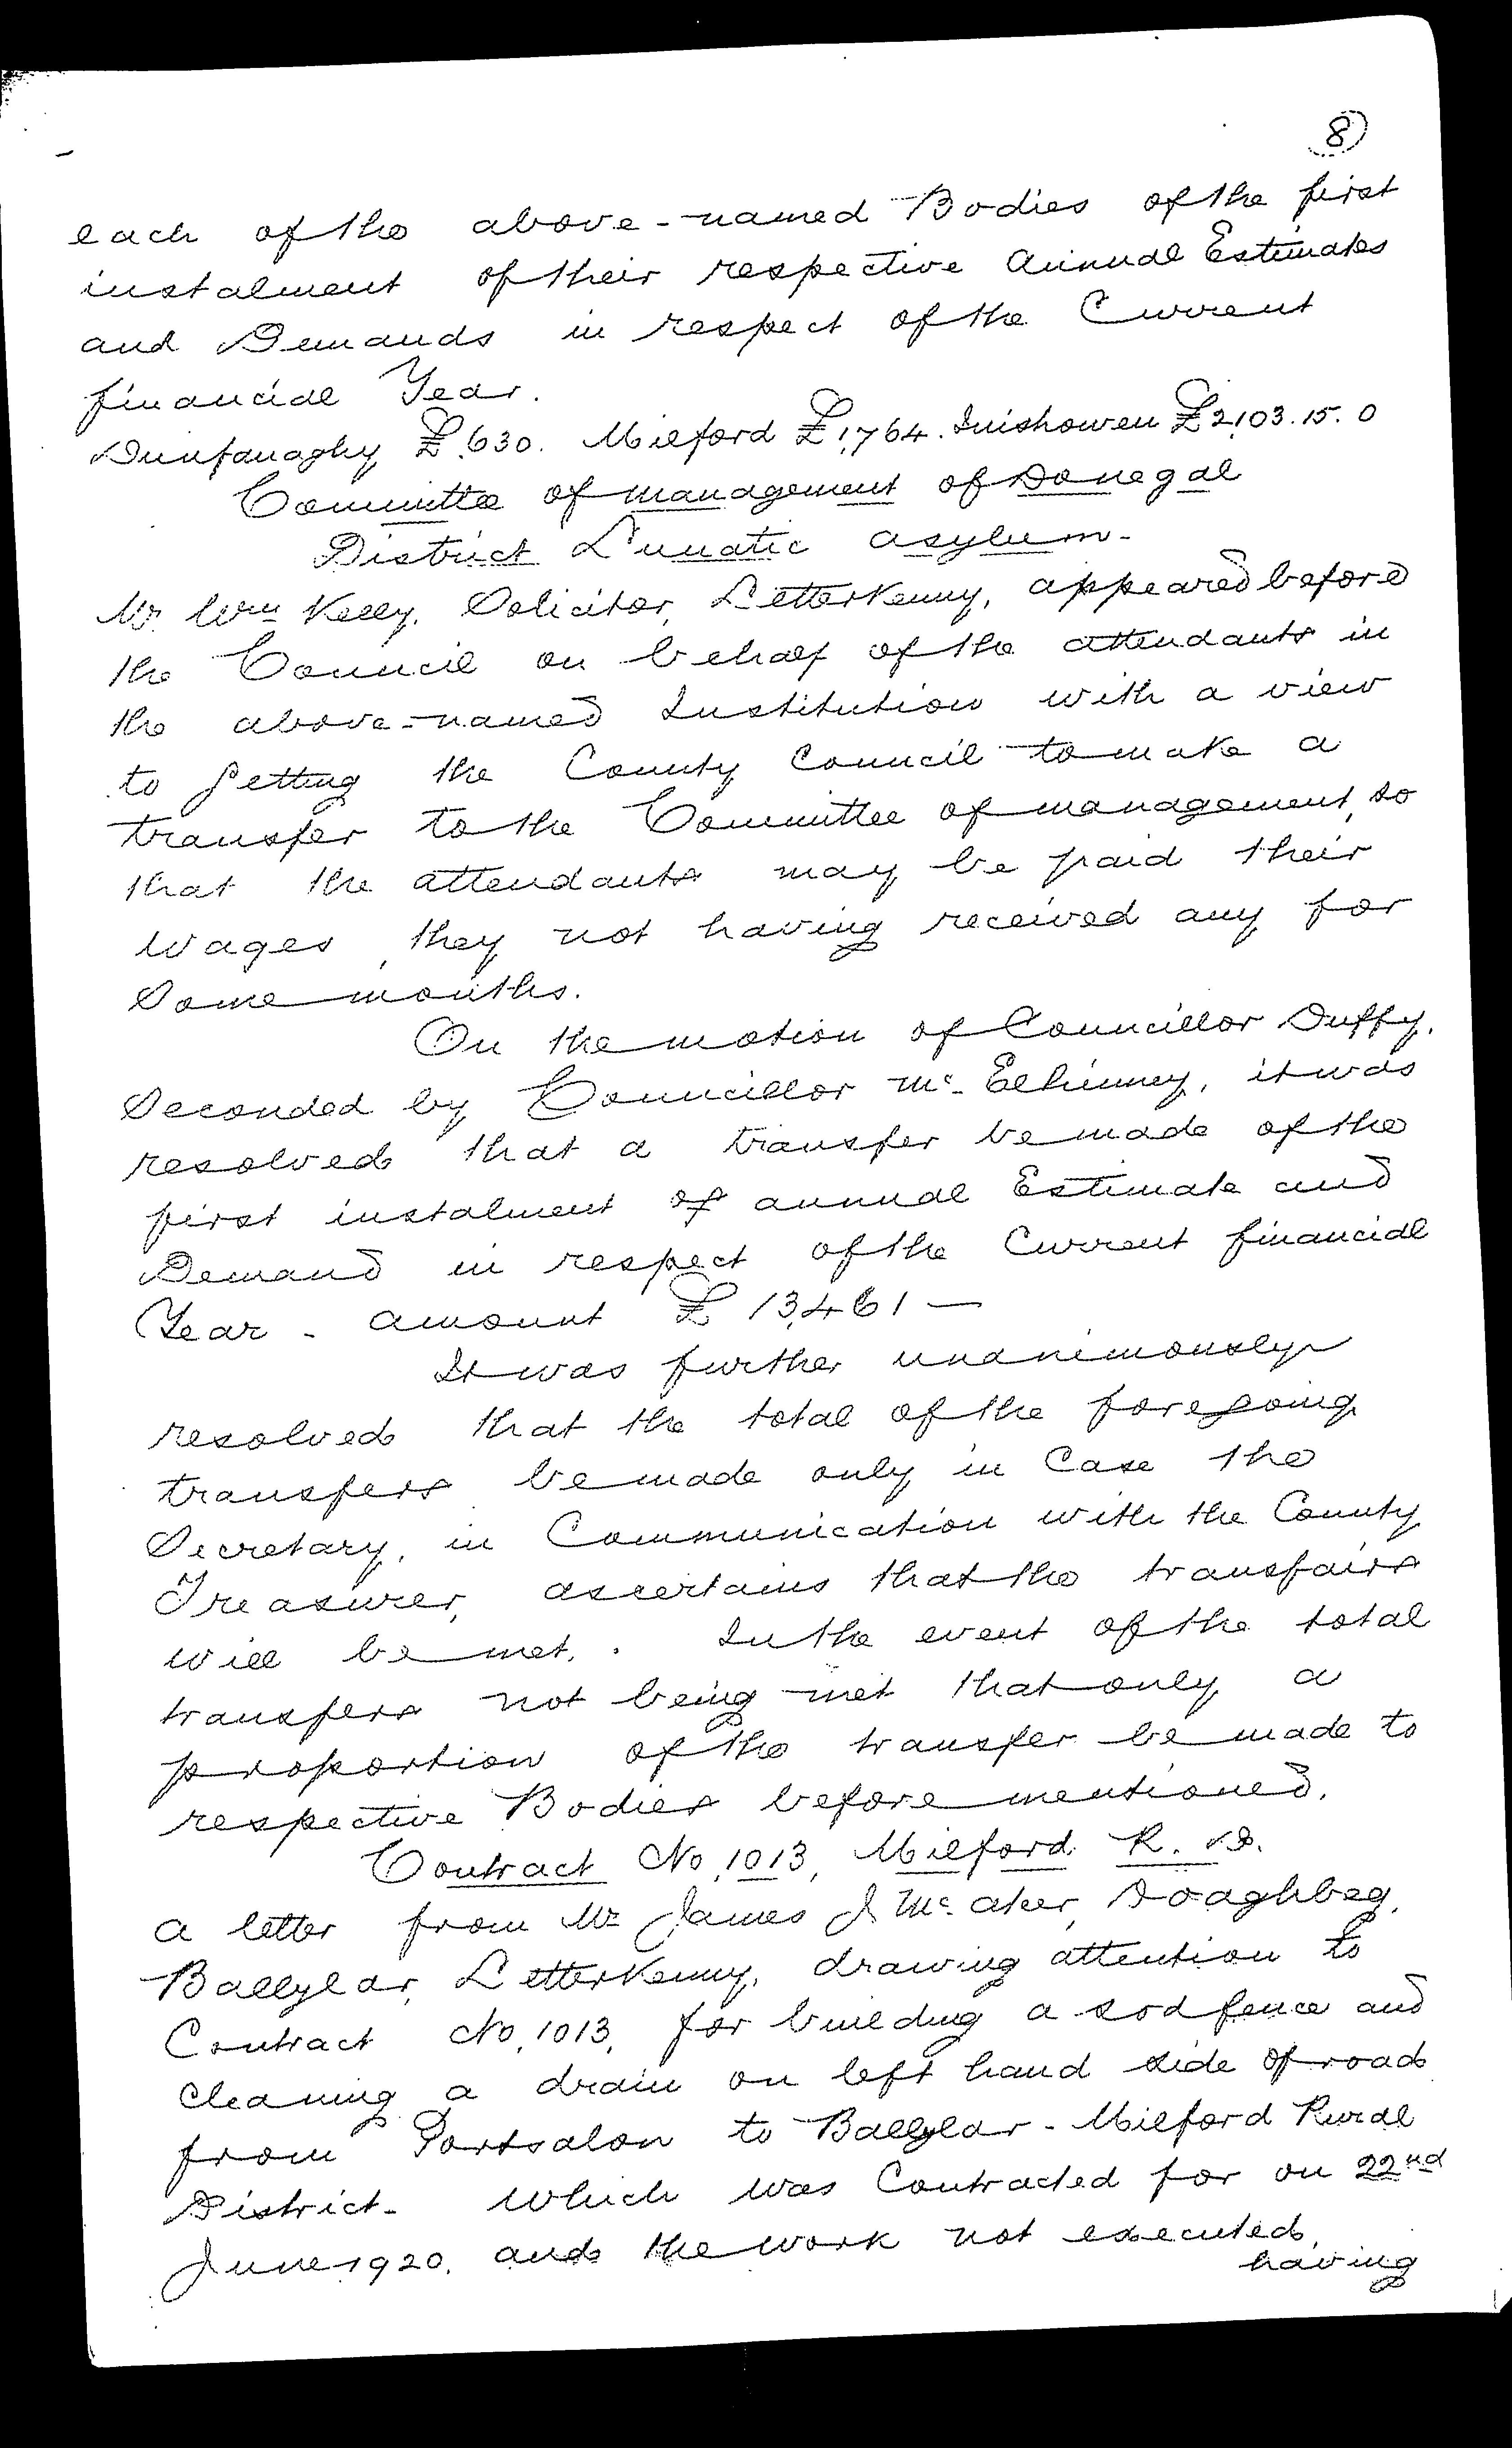 8
each of the above-named Bodies of the first
instalment of their respective Annual Estimates
and Demands in respect of the Current
financial Year.
Dunfanaghy £630. Milford £1,764. Inishowen £2,103.15.0
Committee of management of Donegal
District Lunatic asylum-
Mr. Wm Kelly, Solicitor, Letterkenny, appeared before
the Council on behalf of the attendants in
the above-named Institution with a view
to getting the County Council to make a
transfer to the Committee of management, so
that the attendants may be paid their
wages, they not having received any for
Some months.
On the motion of Councillor Duffy,
Seconded by Councillor Mc. Elhinney, it was
resolved that a transfer be made of the
first instalment of annual Estimate and
Demand in respect of the Current financial
Year - amount £13,461 —
It was further unanimously
resolved that the total of the foregoing
transfers be made only in Case the
Secretary, in Communication with the County
Treasurer, ascertains that the transfairs
will be met. . In the event of the total
transfers not being met that only a
proportion of the transfer be made to
respective Bodies before mentioned.
Contract No. 1013, Milford R. D.
A letter from Mr James J Mc Ater, Doaghbeg,
Ballylar, Letterkenny, drawing attention to
Contract No. 1013, for building a sod fence and
Cleaning a drain on left hand side of road
from Portsalon to Ballylar - Milford Rural
District- which was Contracted for on 22nd
June 1920, and the work not executed,
having